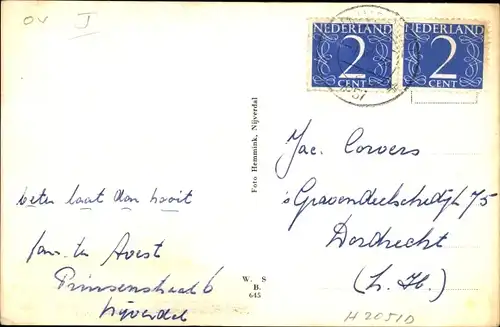 OV I
NEDERLAND
2
CENT
NEDERLAND
2
CENT
Foto Hemmink, Nijverdal
Jac. Corvers
's Gravendeelschedijk 75
Dordrecht
(Z. H.)
beter laat dan nooit
fam. ter Avest
Prinsenstraat 6
Nijverdal
W. S
B.
645
H 20510